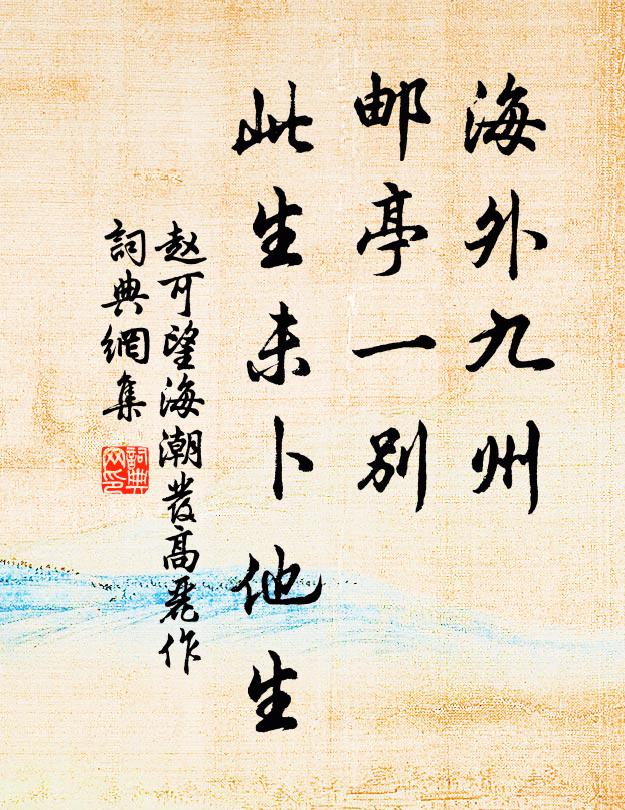 海外九州
邮亭一别
此生未卜他生
赵可望海潮發高麗作
詞典網集
詞典网印